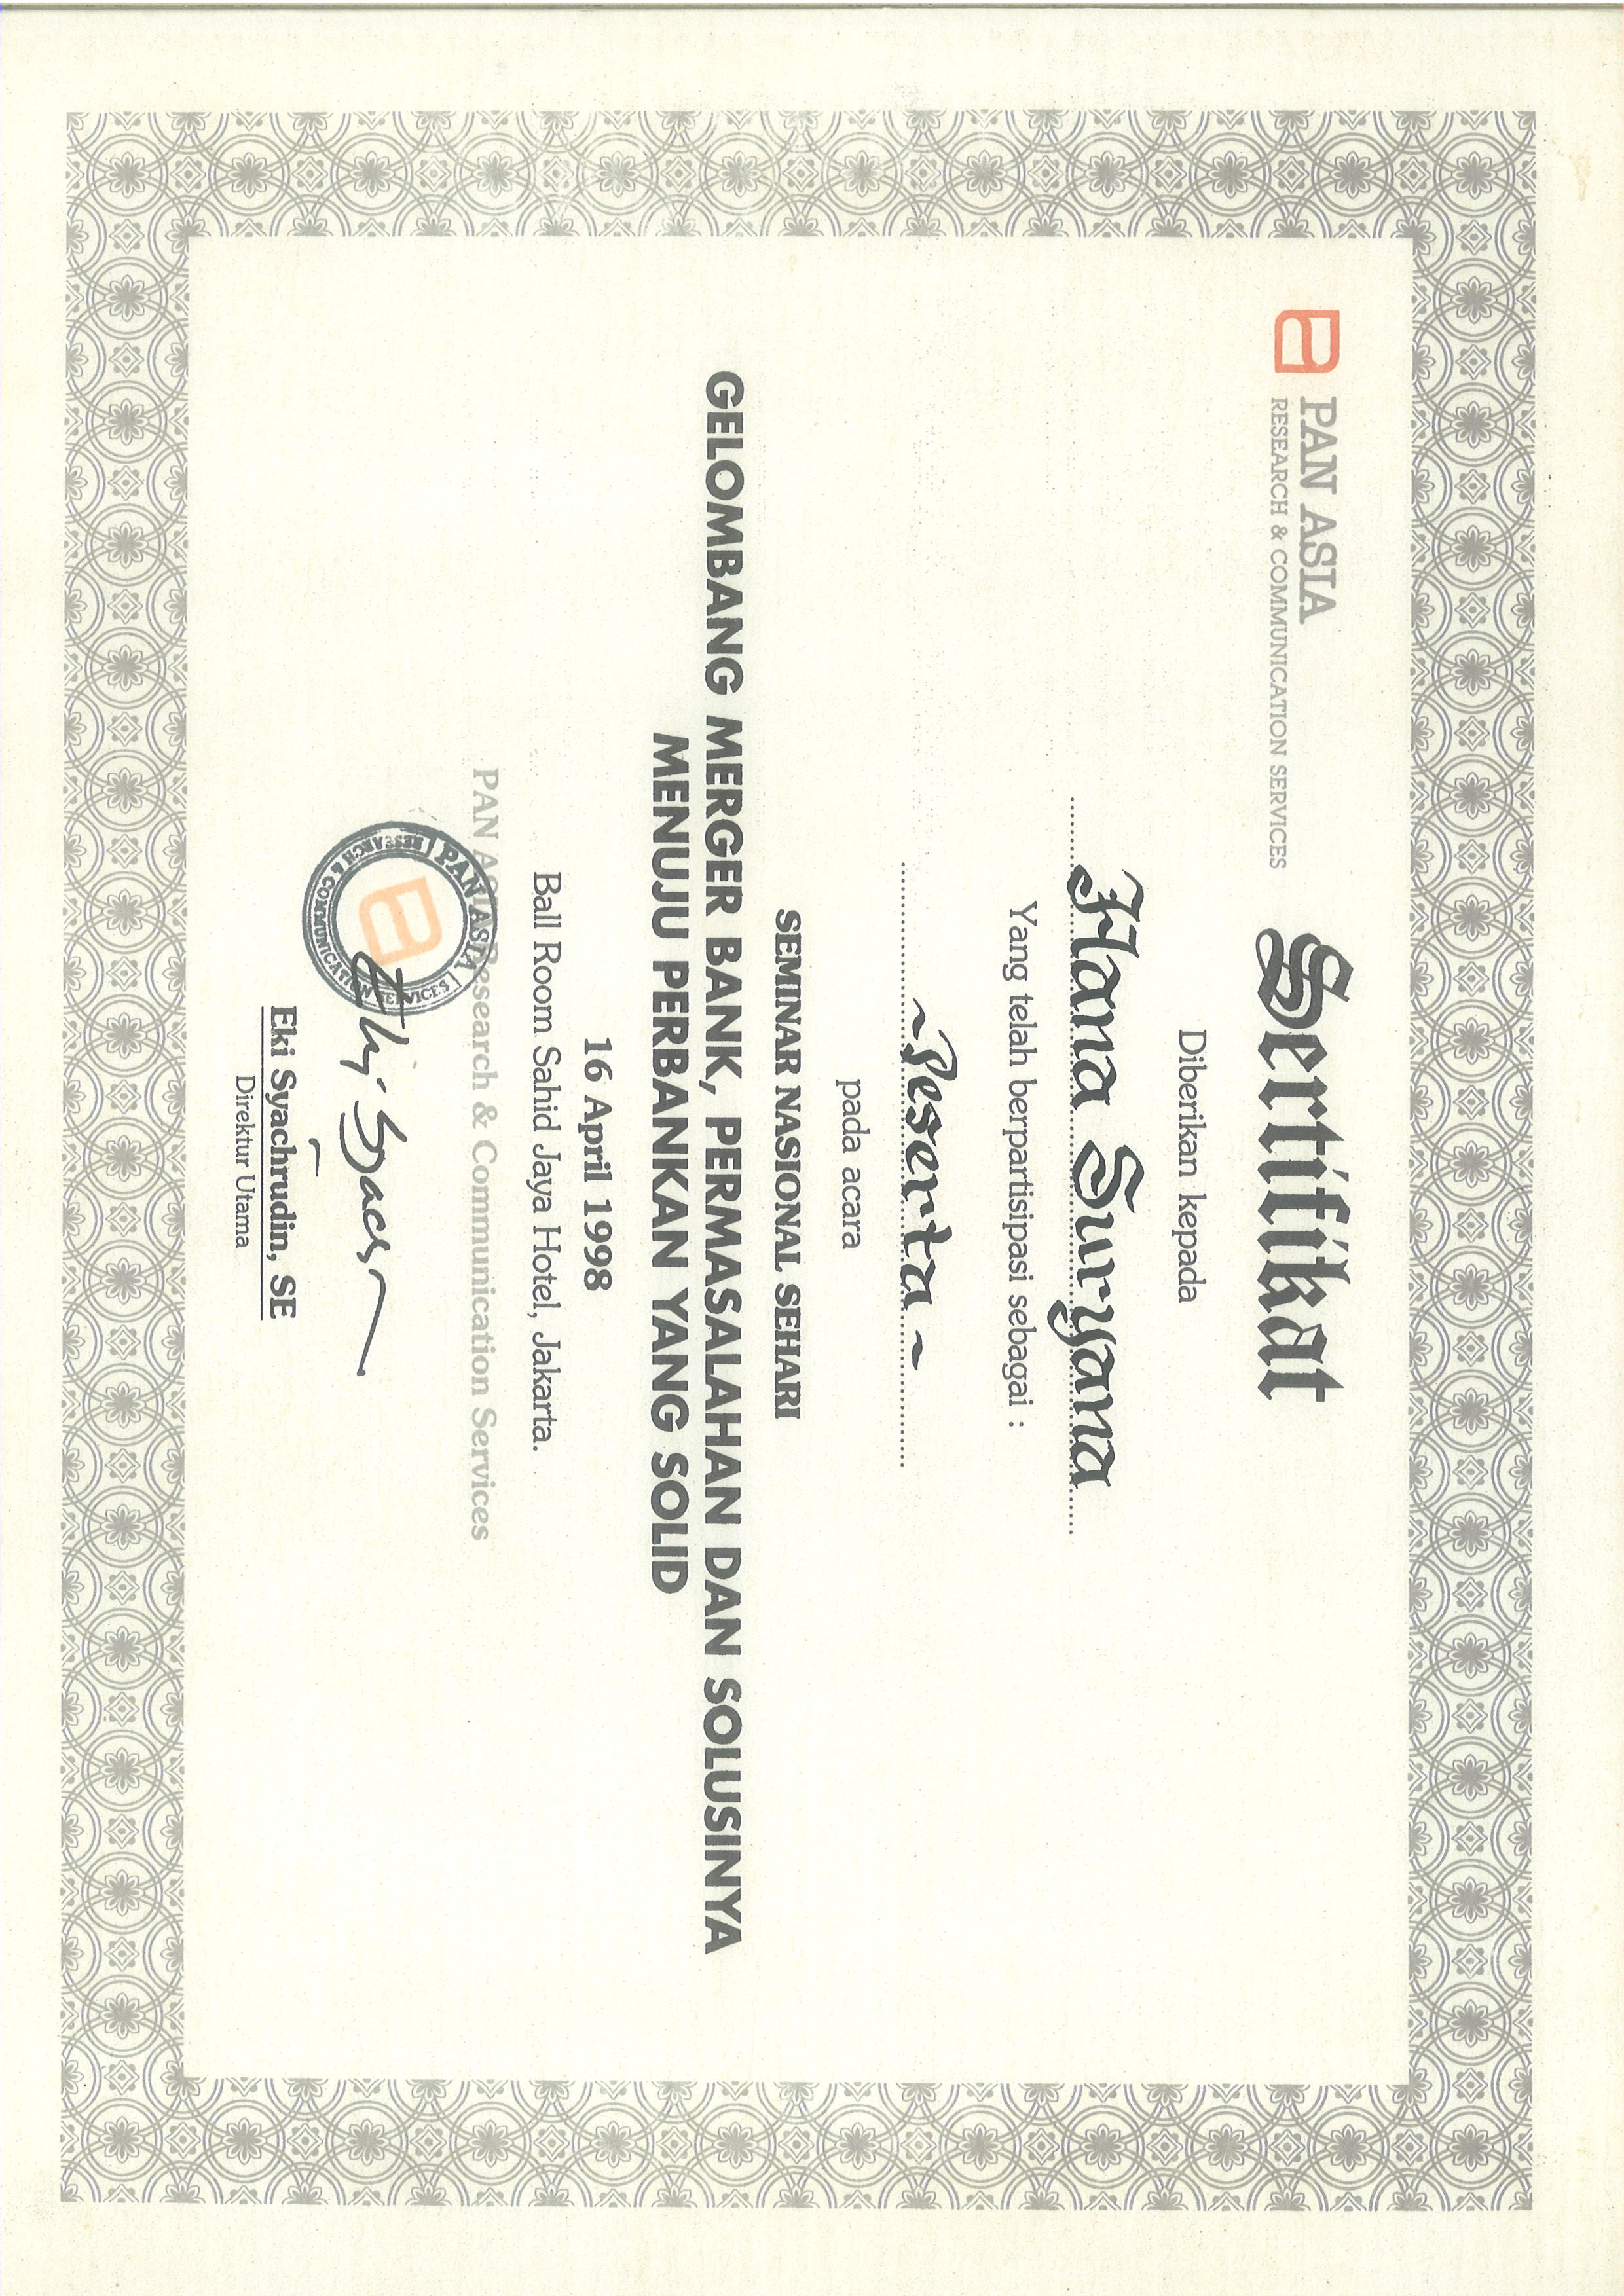 PAN ASIA
RESEARCH & COMMUNICATION SERVICES
Sertifikat
Diberikan kepada
Hana Suryana
Yang telah berpartisipasi sebagai :
~Peserta~
pada acara
SEMINAR NASIONAL SEHARI
GELOMBANG MERGER BANK, PERMASALAHAN DAN SOLUSINYA
MENUJU PERBANKAN YANG SOLID
16 April 1998
Ball Room Sahid Jaya Hotel, Jakarta.
PAN ASIA Research & Communication Services
PAN ASIA
RESEARCH & COMMUNICATION SERVICES
Eki Syachrudin, SE
Direktur Utama